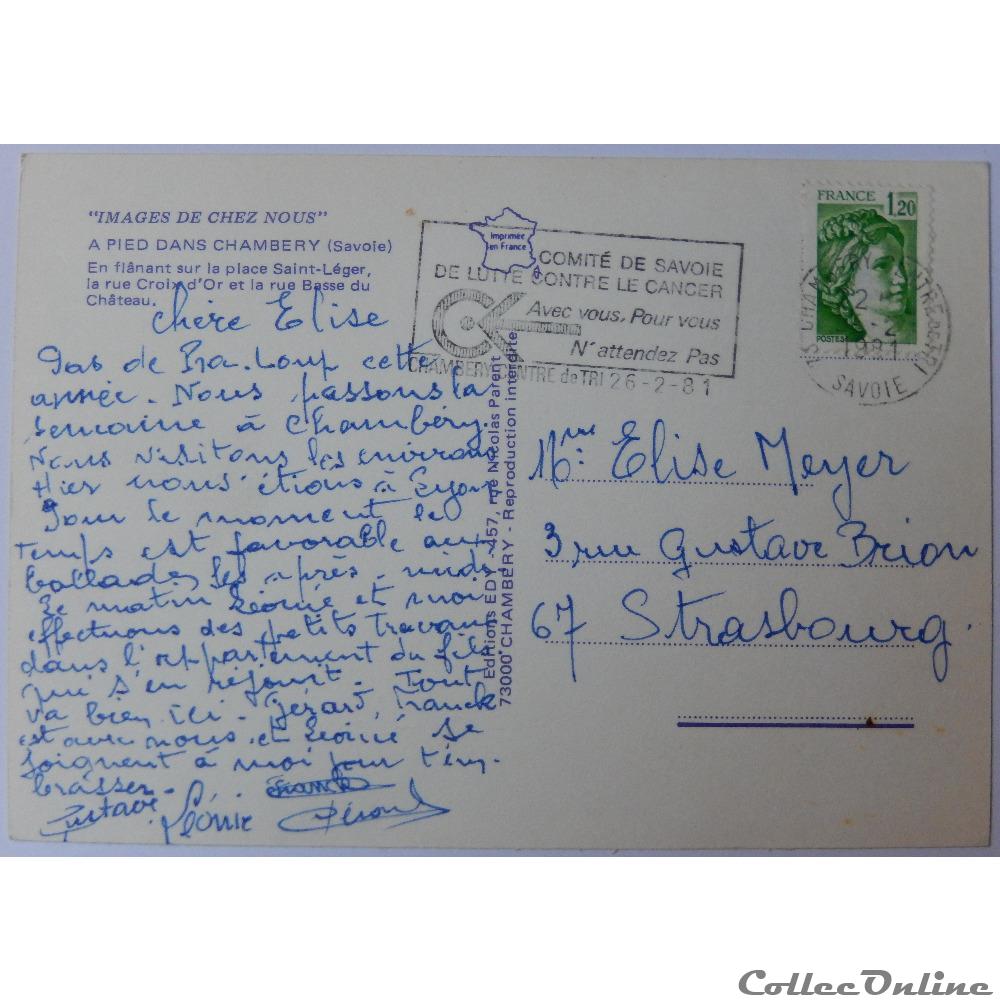 "IMAGES DE CHEZ NOUS"
A PIED DANS CHAMBERY (Savoie)
En flânant sur la place Saint-Léger,
la rue Croix d'Or et la rue Basse du
Château.
Chère Elise
Pas de Pra-Loup cette
année. Nous passons la
semaine à Chambéry.
Nous visitons les environs
Hier nous étions à Lyon
Pour le moment le
temps est favorable aux
ballades les après-midi
Le matin Léonie et moi
effectuons des petits travaux
dans l'appartement du fils
qui s'en réjouit. Tout
va bien ici. Gérard, Franck
est avec nous et Léonie se
joignent à moi pour t'em-
brasser.
Gustave Léonie Franck Gérard
Imprimée
en France
COMITÉ DE SAVOIE
DE LUTTE CONTRE LE CANCER
Avec vous, Pour vous
N'attendez Pas
CHAMBERY CENTRE de TRI 26-2-81
Editions EDY - 457, rue Nicolas Parent
73000 CHAMBERY - Reproduction interdite
FRANCE 1,20
POSTES
1981
SAVOIE
Mme Elise Meyer
3, rue Gustave Brion
67 Strasbourg.
CollecOnline